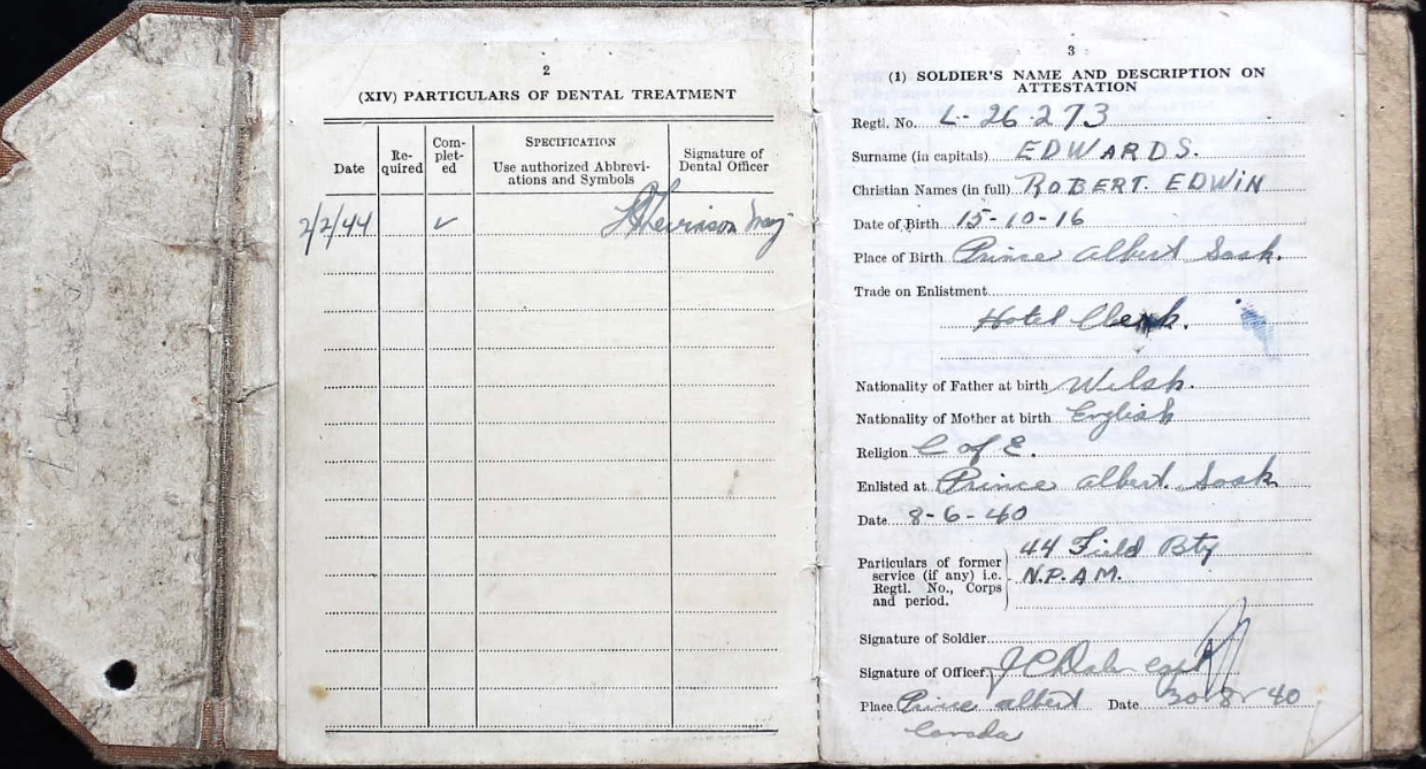 2
(XIV) PARTICULARS OF DENTAL TREATMENT
Date
Re-
quired
Com-
plet-
ed
SPECIFICATION
Use authorized Abbrevi-
ations and Symbols
Signature of
Dental Officer
2/2/44 ✓ Levinson Maj
3
(1) SOLDIER'S NAME AND DESCRIPTION ON
ATTESTATION
Regtl. No. L-26273
Surname (in capitals) EDWARDS.
Christian Names (in full) ROBERT. EDWIN
Date of Birth 15-10-16
Place of Birth Prince Albert Sask.
Trade on Enlistment
Hotel Clerk.
Nationality of Father at birth Welsh.
Nationality of Mother at birth English
Religion C of E.
Enlisted at Prince Albert. Sask
Date 8-6-40
Particulars of former
service (if any) i.e.
Regtl. No., Corps
and period.
44 Field Bty
N.P.A.M.
Signature of Soldier
Signature of Officer Capt
Place Prince Albert Date 30-8-40
Canada